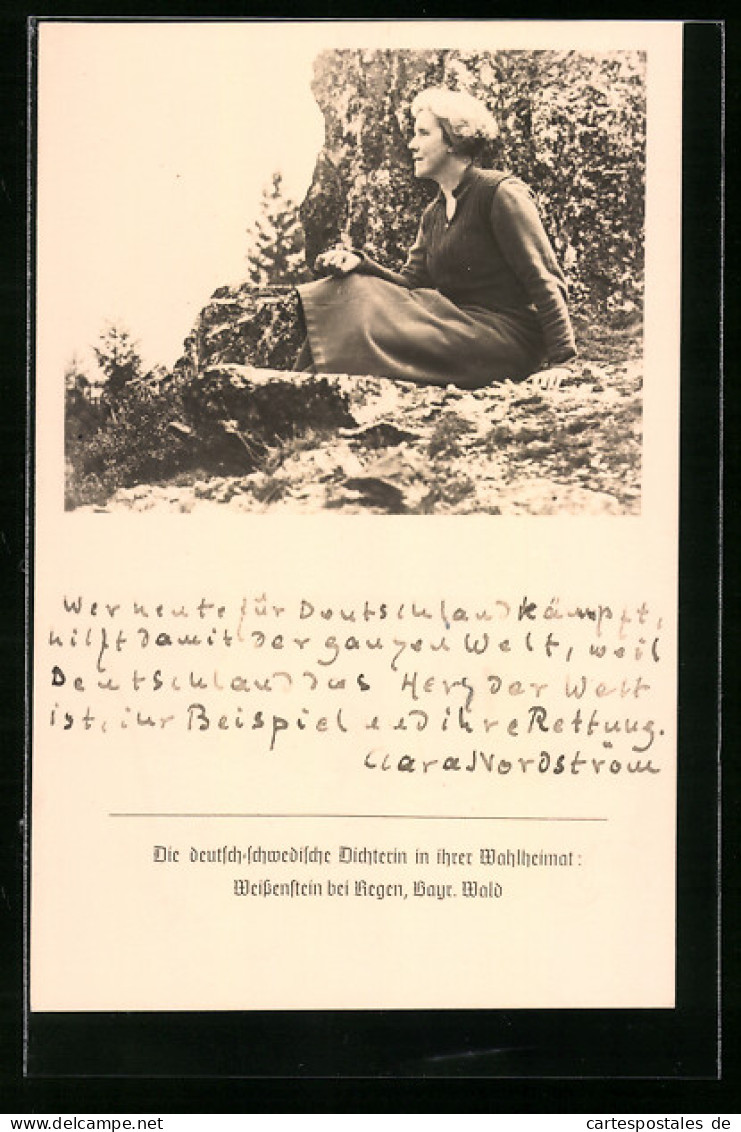 Wer heute für Deutschland kämpft,
hilft damit der ganzen Welt, weil
Deutschland das Herz der Welt
ist, ihr Beispiel und ihre Rettung.
Clara Nordström
Die deutsch-schwedische Dichterin in ihrer Wahlheimat:
Weißenstein bei Regen, Bayr. Wald
cartespostales de